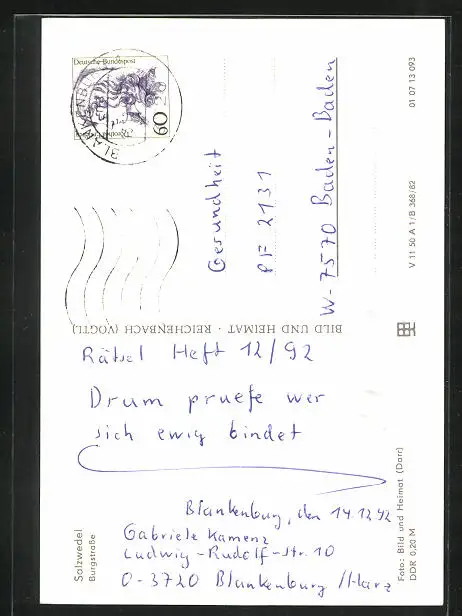 Rätsel Heft 12/92
Drum pruefe wer
sich ewig bindet
Blankenburg, den 14.12.92
Gabriele Kamenz
Ludwig-Rudolf-Str. 10
O-3720 Blankenburg /Harz
Salzwedel
Burgstraße
BILD UND HEIMAT · REICHENBACH (VOGTL)
Foto: Bild und Heimat (Darr)
DDR 0,20 M
V 11 50 A 1/B 368/82
01 07 13 093
Deutsche Bundespost
60
Gesundheit
PF 2131
W-7570 Baden-Baden